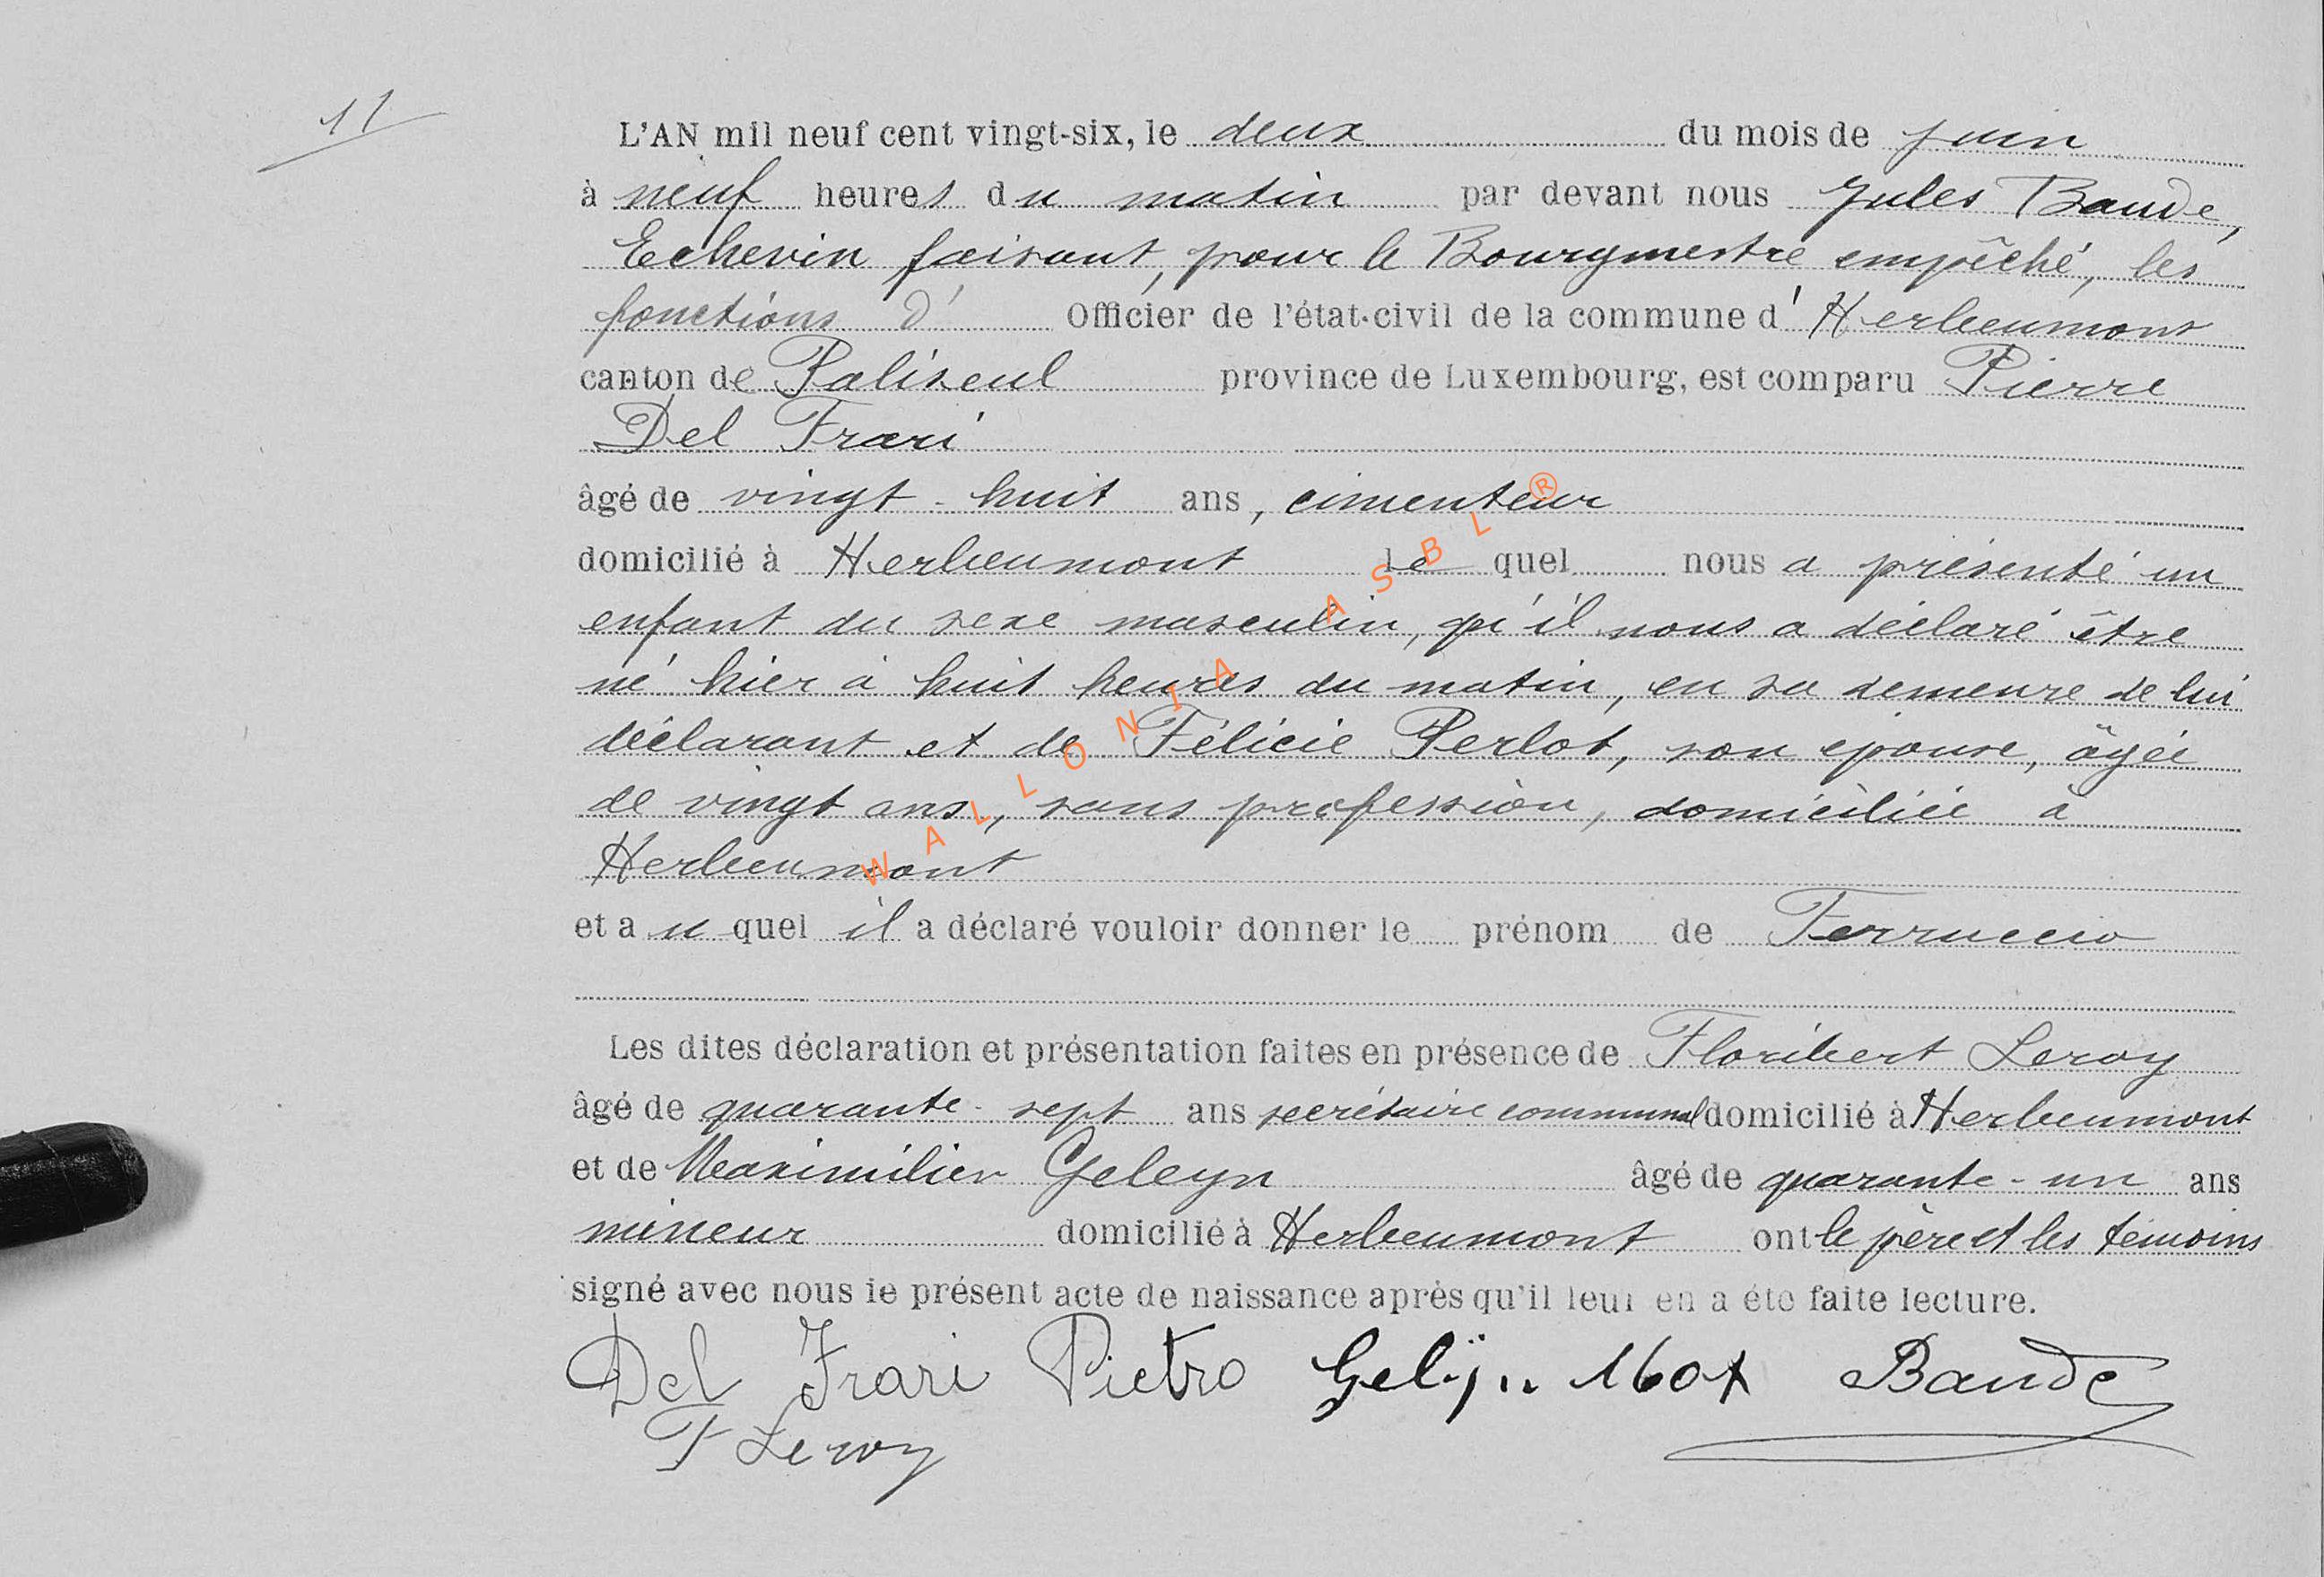 11
L'AN mil neuf cent vingt-six, le deux du mois de juin
à neuf heures du matin par devant nous Jules Baude,
Echevin faisant, pour le Bourgmestre empêché, les
fonctions d' Officier de l'état-civil de la commune d' Herbeumont
canton de Paliseul province de Luxembourg, est comparu Pierre
Del Frari
âgé de vingt-huit ans, cimenteur
domicilié à Herbeumont lequel nous a présenté un
enfant du sexe masculin, qu'il nous a déclaré être
né hier à huit heures du matin, en sa demeure de lui
déclarant et de Félicie Perlot, son épouse, âgée
de vingt ans, sans profession, domiciliée à
Herbeumont
et au quel il a déclaré vouloir donner le prénom de Ferruccio
Les dites déclaration et présentation faites en présence de Floribert Leroy
âgé de quarante-sept ans secrétaire communal domicilié à Herbeumont
et de Maximilien Geleyn âgé de quarante-un ans
mineur domicilié à Herbeumont ont le père et les témoins
signé avec nous le présent acte de naissance après qu'il leur en a été faite lecture.
Del Frari Pietro Gelijn Baude
F Leroy
WALLONIA ASBL ®